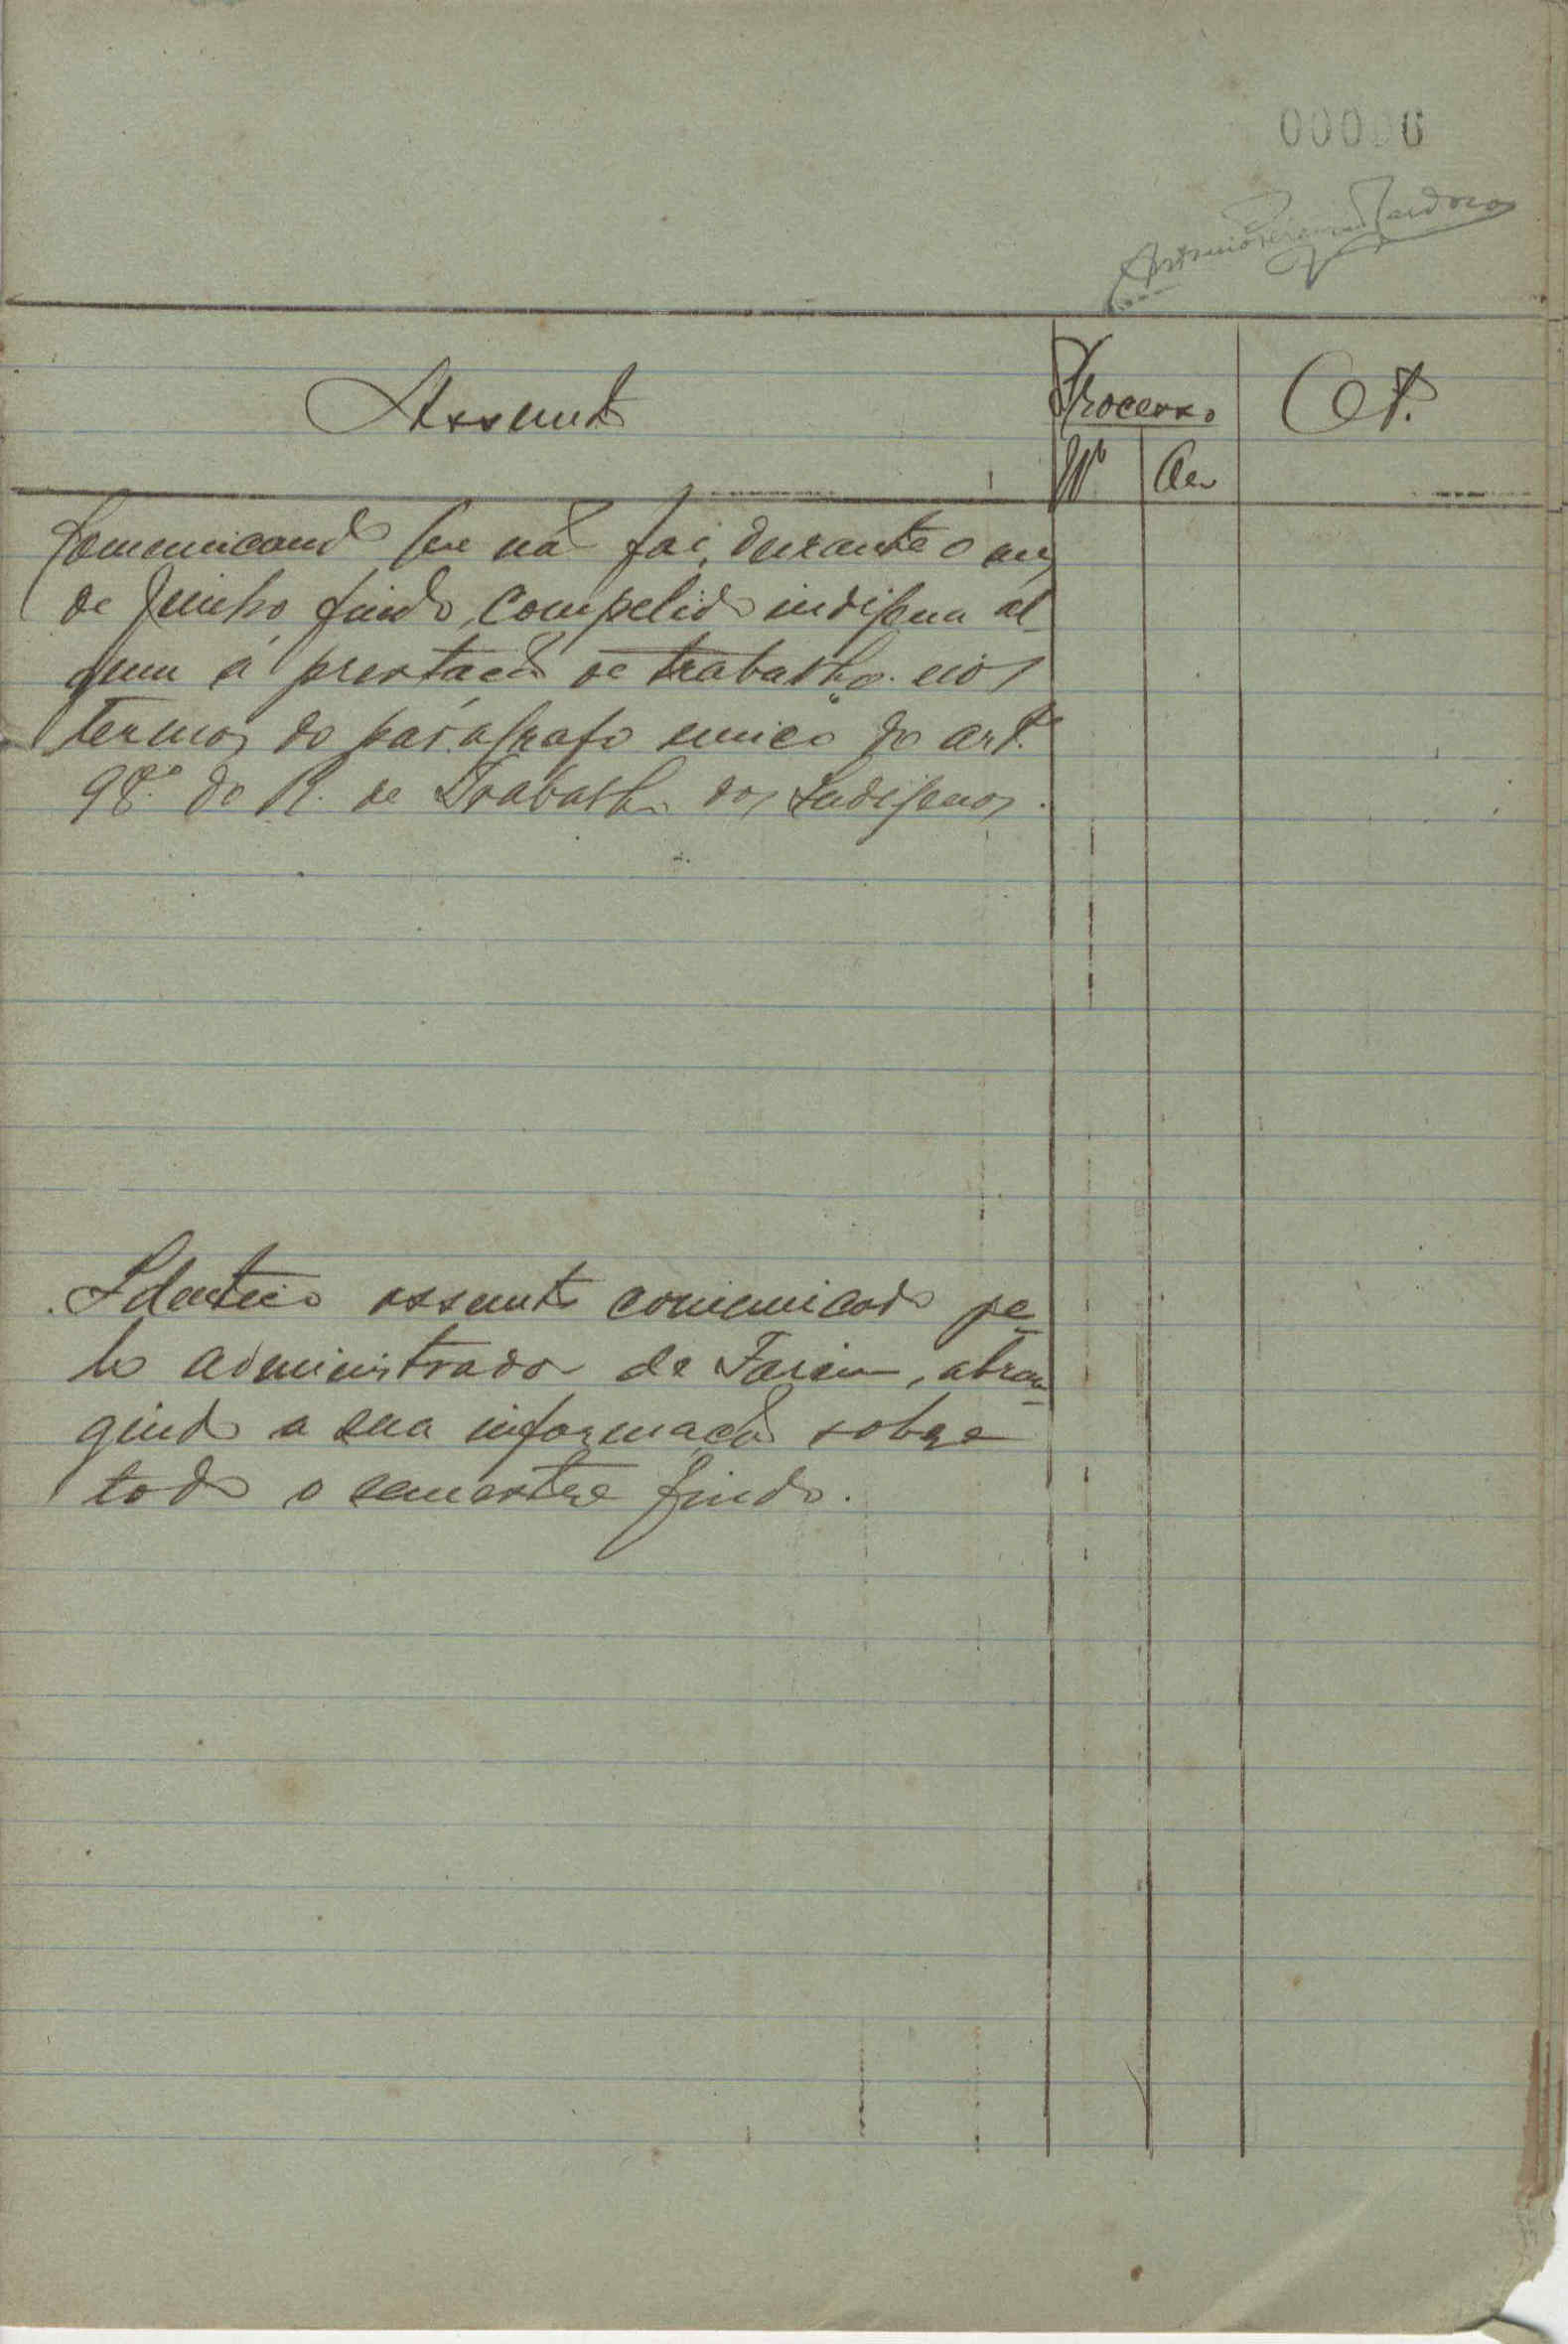 Assunto
Processo
Nº
Comunicando que não foi, durante o mez
de Junho findo, compelido indigena al-
gum á prestação de trabalho nos
termos do paragrafo unico do artº
98.º do R. de Trabalho dos Indigenas.
Identico assunto comunicado pe-
lo administrador de Farim, abran-
gindo a sua informação sobre
todo o semestre findo.